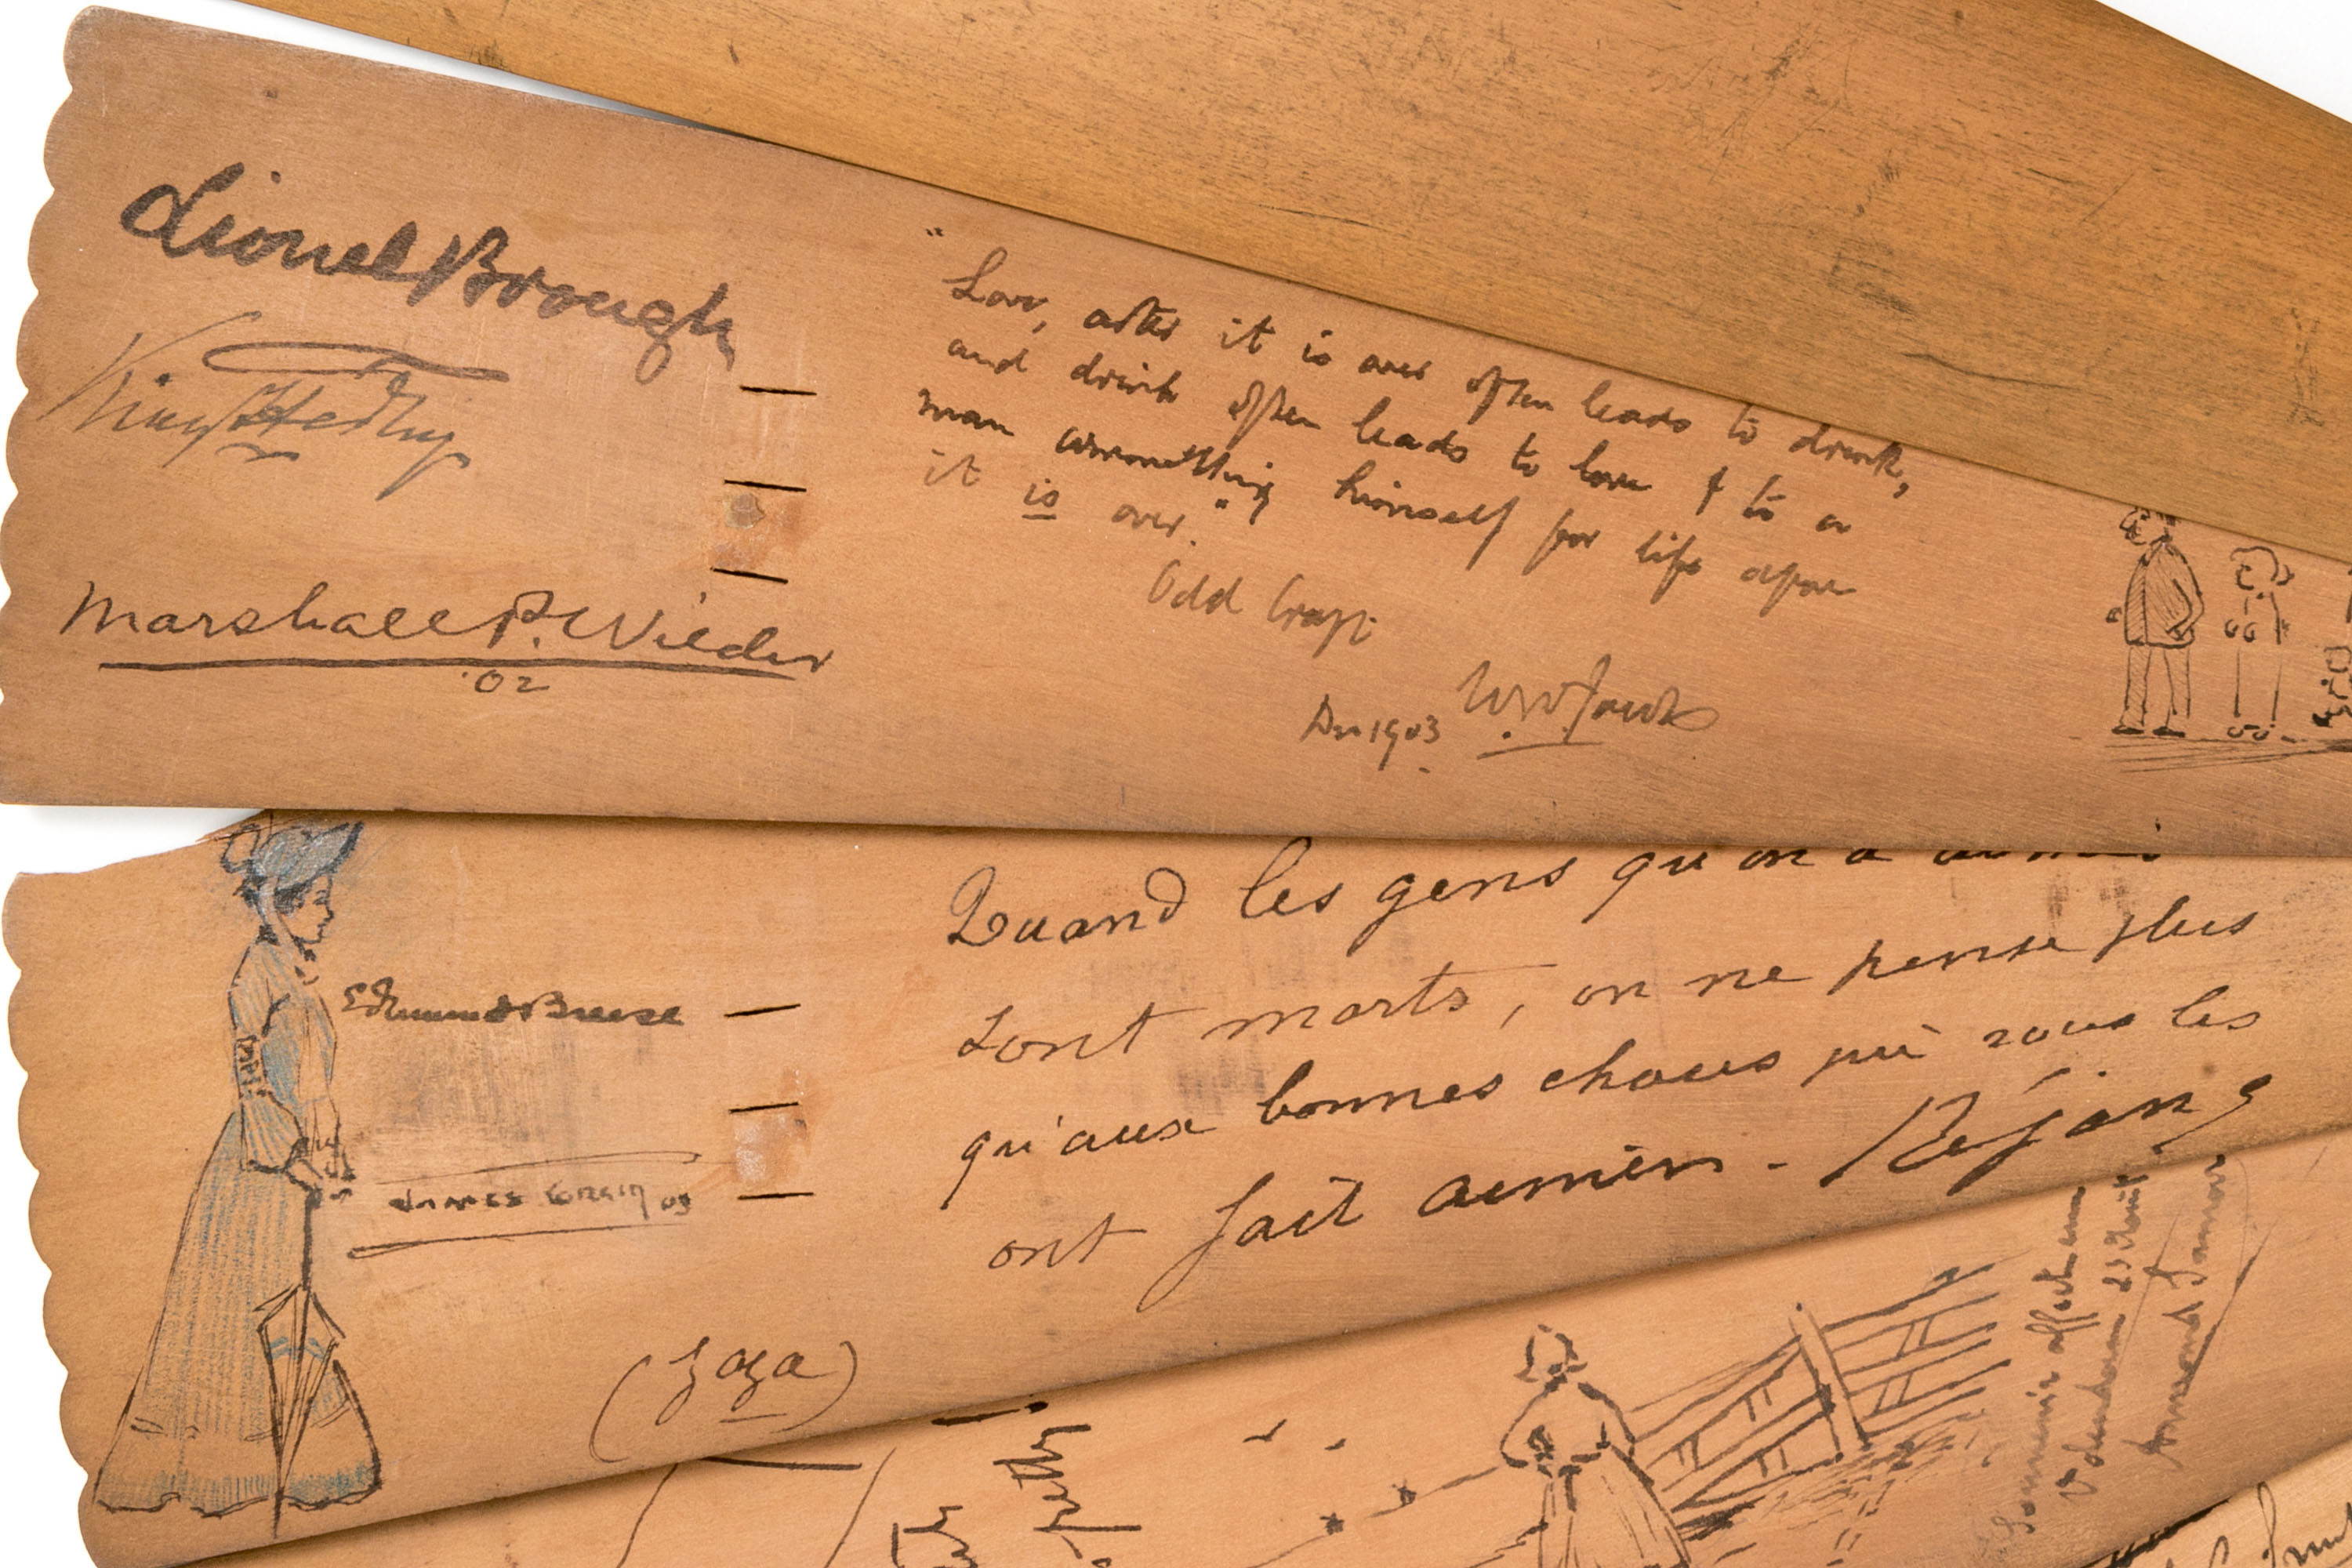 Lionel Brough
King Hedley
Marshall P. Wilder
'02
"Love, after it is over often leads to drink,
and drink often leads to love & to a
man committing himself for life after
it is over."
Odd Craft
Dec 1903 WW Jacobs
Quand les gens qu'on a aimés
sont morts, on ne pense plus
qu'aux bonnes choses qui vous les
ont fait aimer. Réjane
Edmund Breese
James 03
(Zaza)
Souvenir
London 23 Août
Armand